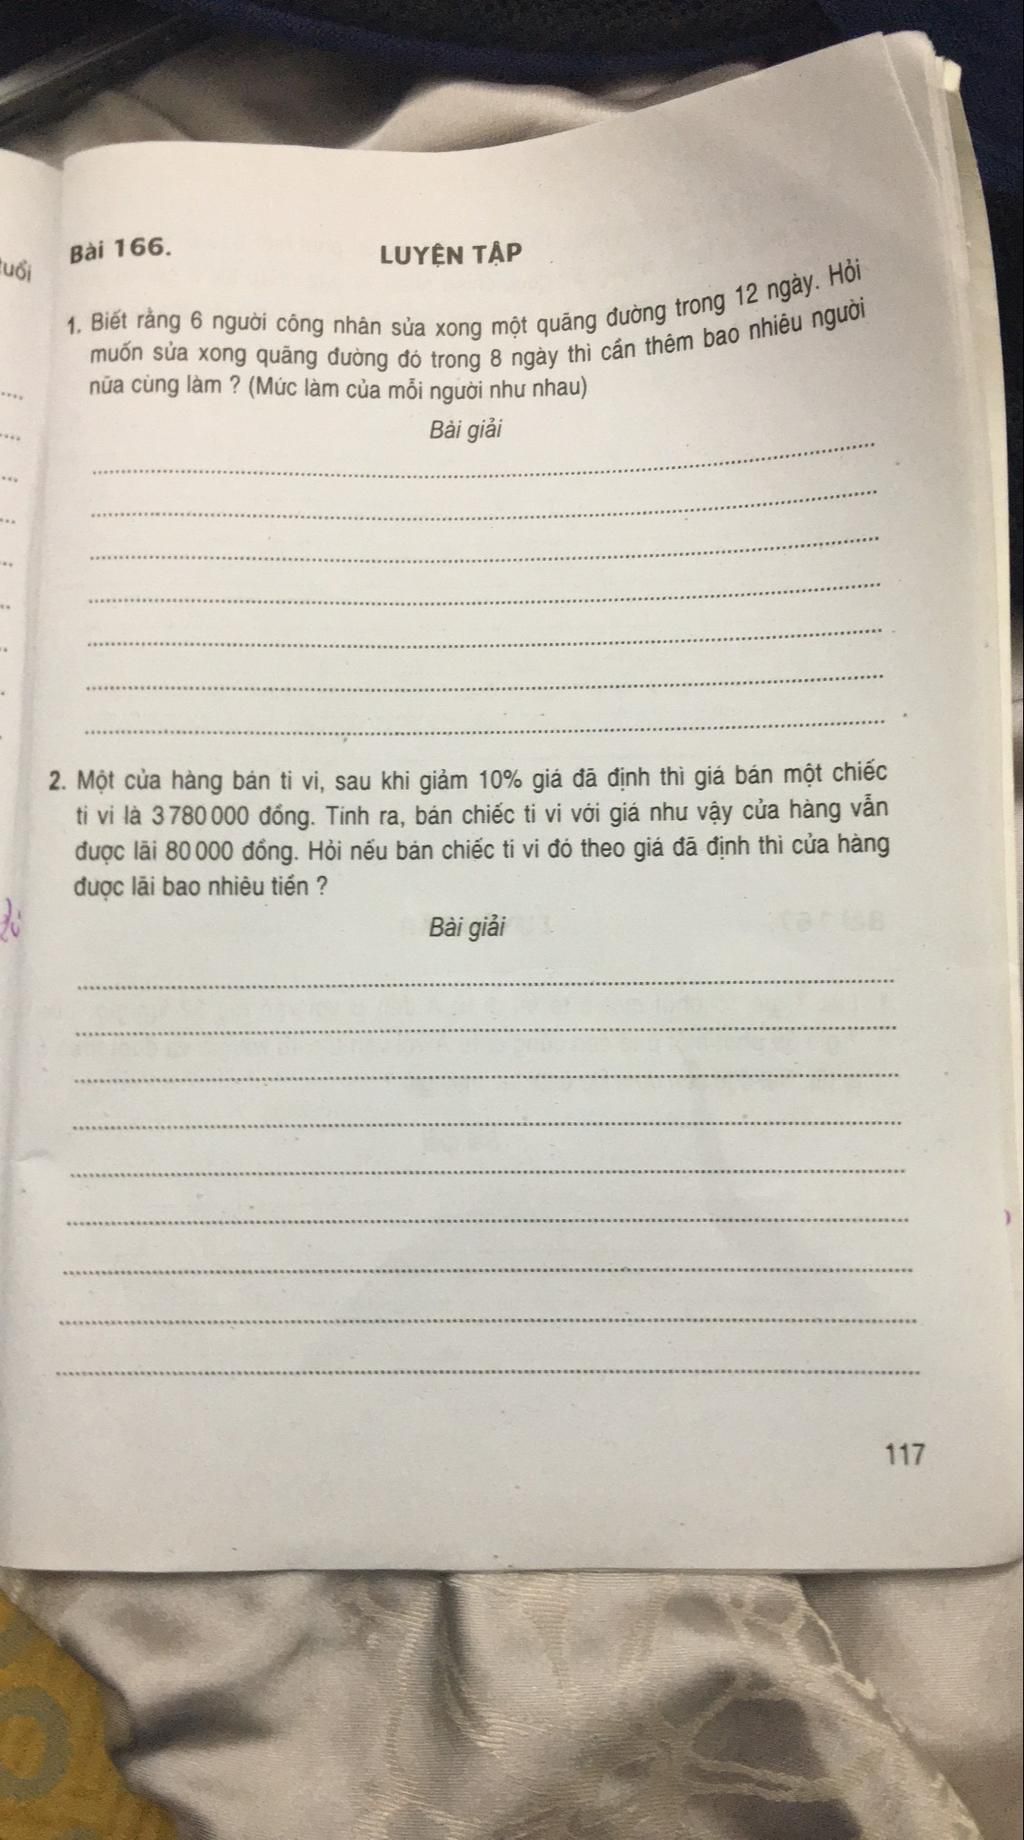 tuổi
Bài 166.
LUYỆN TẬP
1. Biết rằng 6 người công nhân sửa xong một quãng đường trong 12 ngày. Hỏi
muốn sửa xong quãng đường đó trong 8 ngày thì cần thêm bao nhiêu người
nữa cùng làm ? (Mức làm của mỗi người như nhau)
Bài giải
2. Một cửa hàng bán ti vi, sau khi giảm 10% giá đã định thì giá bán một chiếc
ti vi là 3 780 000 đồng. Tính ra, bán chiếc ti vi với giá như vậy cửa hàng vẫn
được lãi 80 000 đồng. Hỏi nếu bán chiếc ti vi đó theo giá đã định thì cửa hàng
được lãi bao nhiêu tiền ?
Bài giải
117